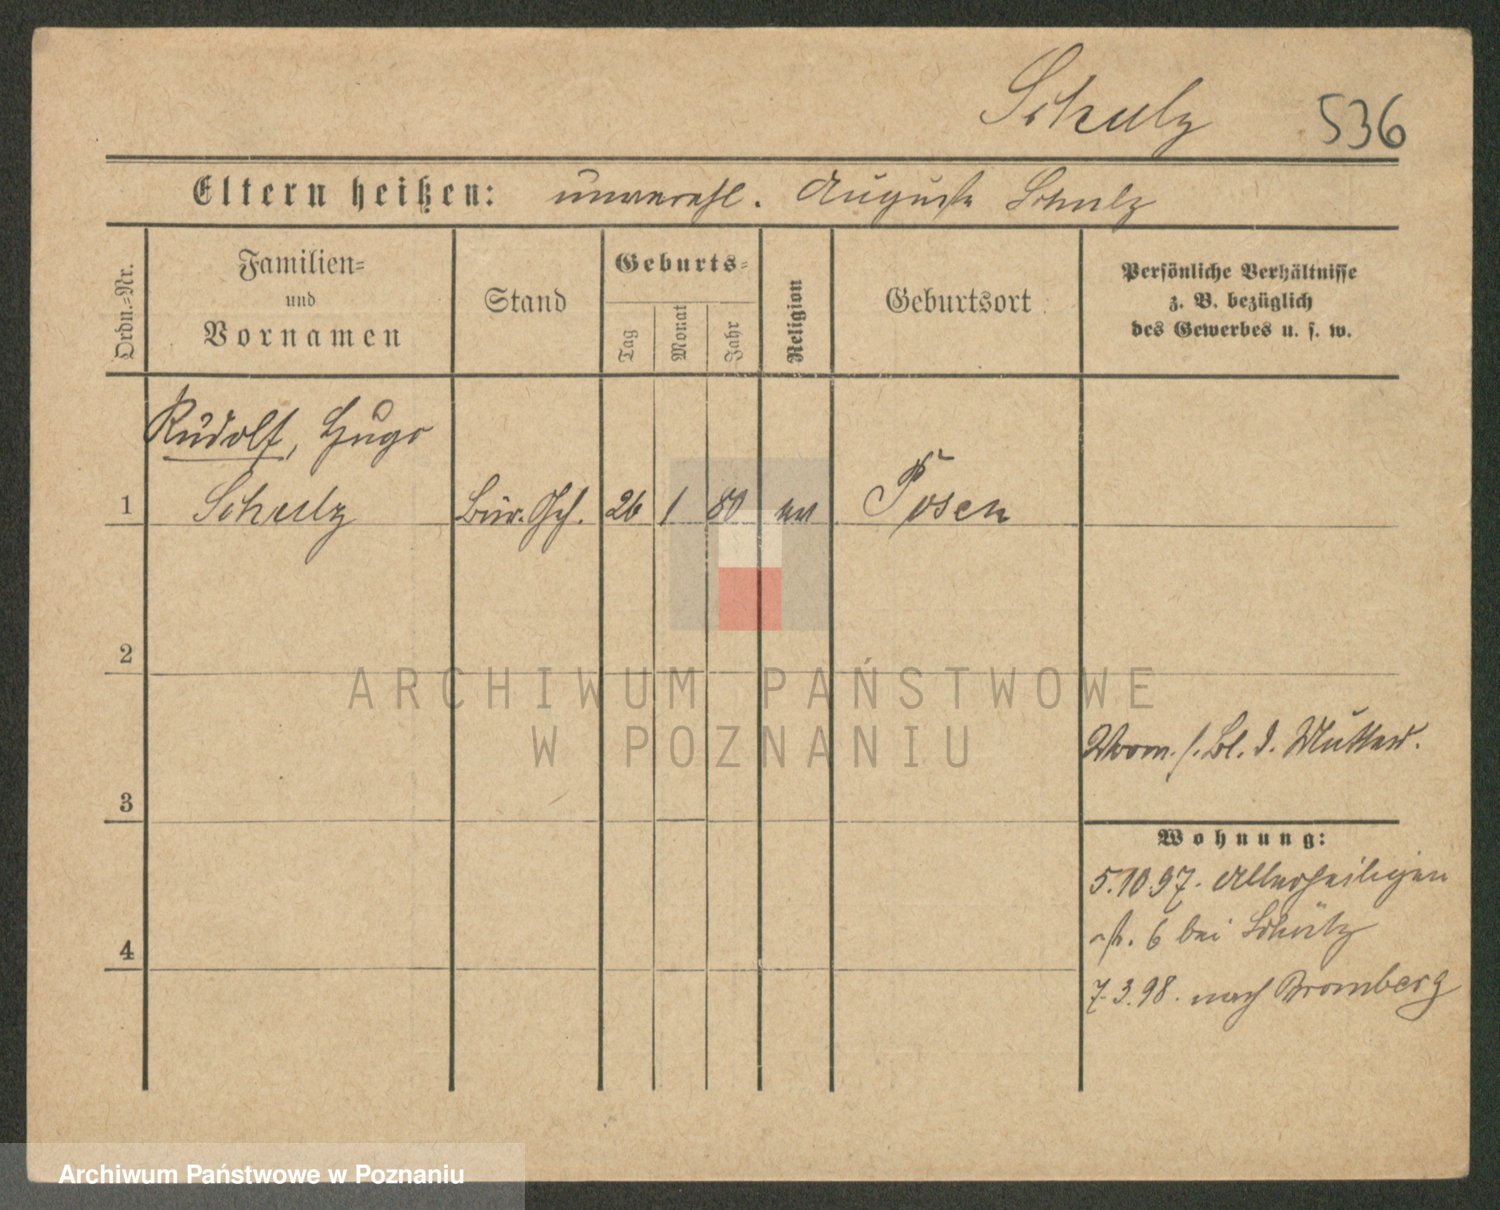 Schulz 536
Eltern heißen: unverehl. Auguste Schulz
Ordn.=Nr.
Familien=
und
Vornamen
Stand
Geburts=
Tag
Monat
Jahr
Religion
Geburtsort
Persönliche Verhältnisse
z. B. bezüglich
des Gewerbes u. s. w.
Rudolf, Hugo
1 Schulz Bür. Geh. 26 1 80 ev Posen
2
ARCHIWUM PAŃSTWOWE
W POZNANIU
Vorm. s. Bl. d. Mutter.
3
Wohnung:
5.10.97. Allerheiligen
str. 6 bei Schütz
4
7.3.98. nach Bromberg
Archiwum Państwowe w Poznaniu